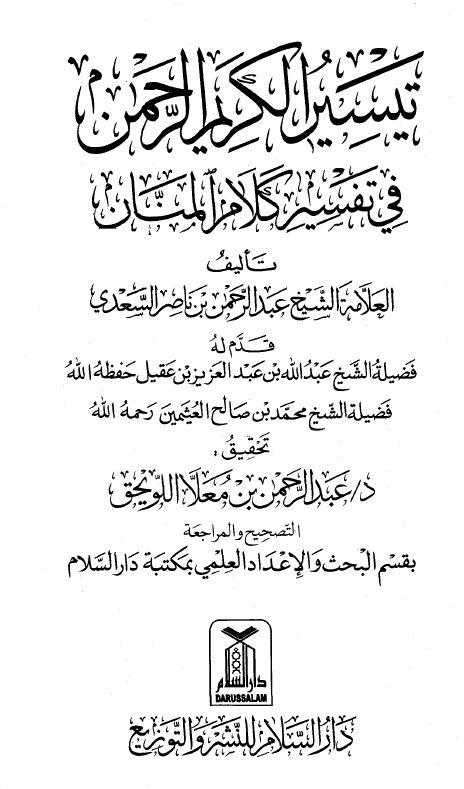 تيسير الكريم الرحمن
في تفسير كلام المنان
تأليف
العلامة الشيخ عبد الرحمن بن ناصر السعدي
قدم له
فضيلة الشيخ عبد الله بن عبد العزيز بن عقيل حفظه الله
فضيلة الشيخ محمد بن صالح العثيمين رحمه الله
تحقيق :
د/ عبد الرحمن بن معلا اللويحق
التصحيح والمراجعة
بقسم البحث والإعداد العلمي بمكتبة دار السلام
دار السلام
DARUSSALAM
دار السلام للنشر والتوزيع